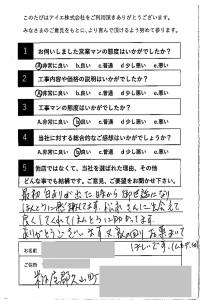 このたびはアイエ株式会社をご利用頂きありがとうございます。
みなさまのご意見をもとに、より喜んで頂けるよう努めて参ります。
1 お伺いしました営業マンの態度はいかがでしたか？
A.非常に良い b.良い c.普通 d.少し悪い e.悪い
2 工事内容や価格の説明はいかがでしたか？
A.非常に良い b.良い c.普通 d.少し悪い e.悪い
3 工事マンの態度はいかがでしたか？
A.非常に良い b.良い c.普通 d.少し悪い e.悪い
4 当社に対する総合的なご感想はいかがでしょうか？
A.非常に良い b.良い c.普通 d.少し悪い e.悪い
5 他店ではなくて、当社を選ばれた理由、その他
どんな事でも結構です。ご意見、ご要望をお聞かせ下さい。
最初 雨もりが出た時から御世話になり
ほんとうに感謝してます。 さんに出会えて
良くしてくれてほんとうに助かってます。
ありがとうございます 又 家の回り お集めて
ほしいです。
お名前
ご住所
糟屋郡久山町